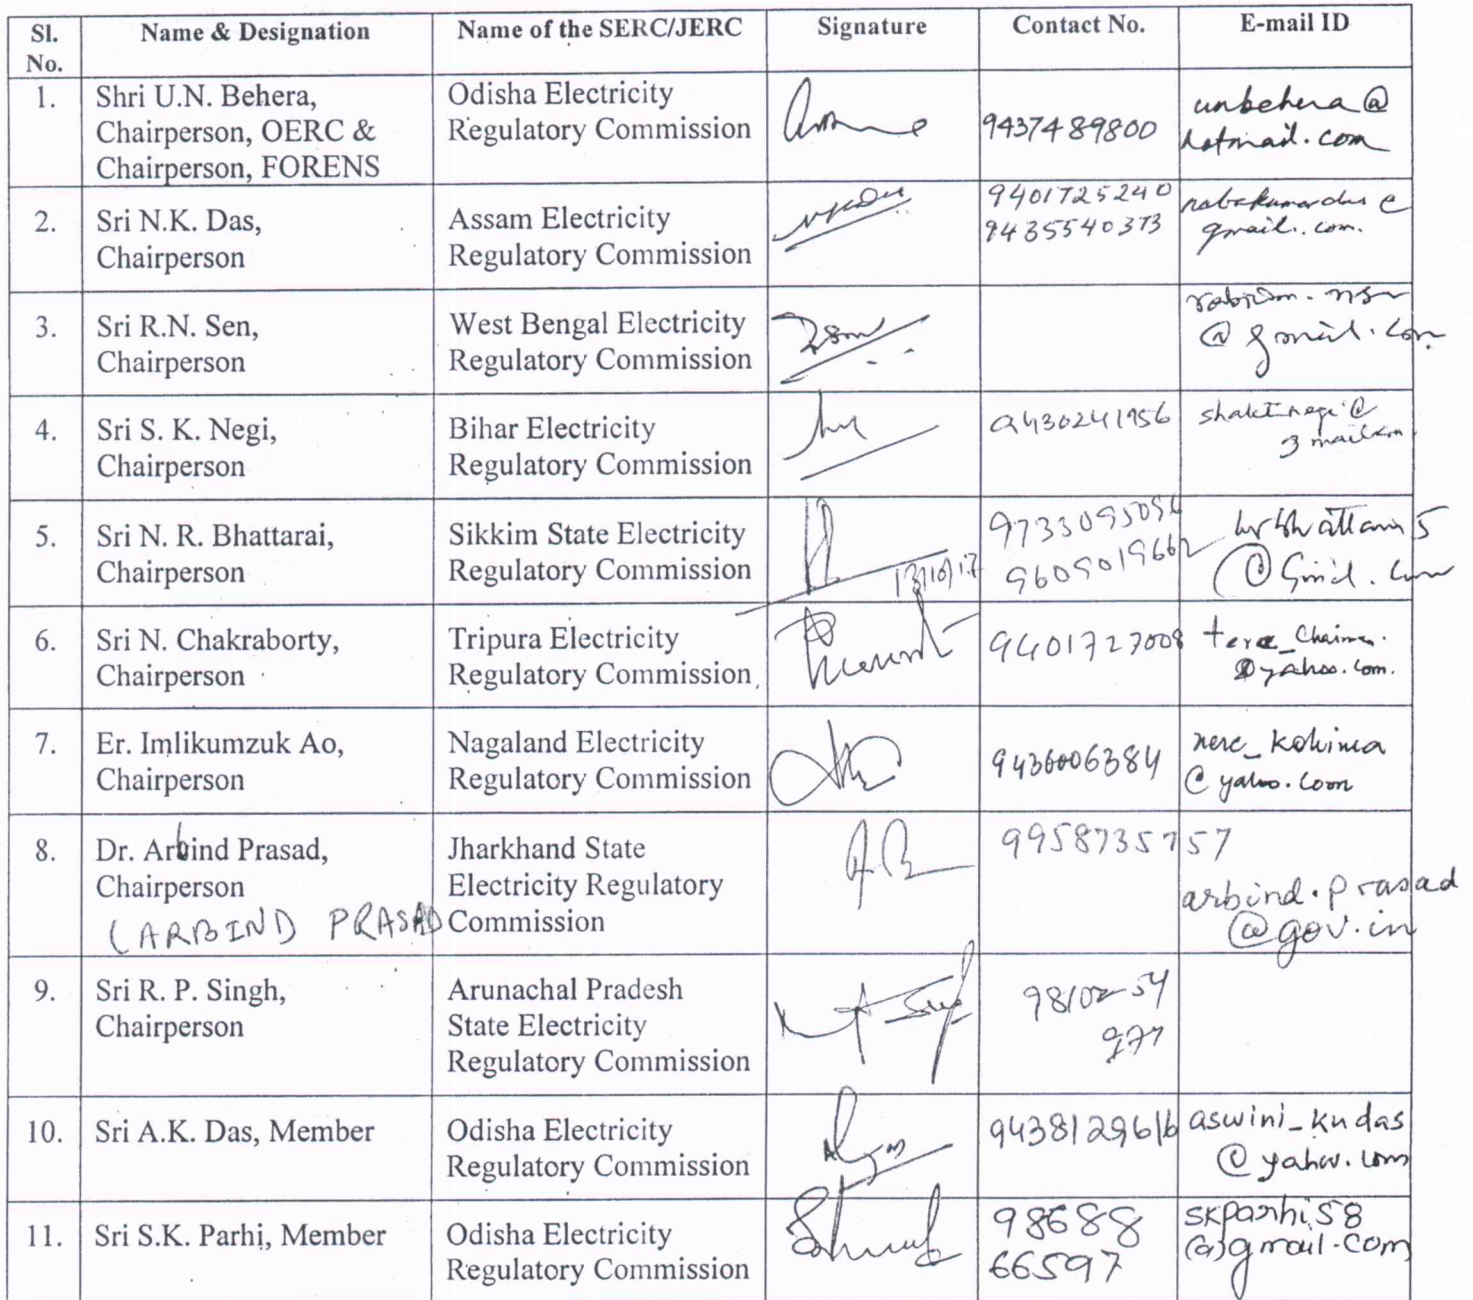 Sl. No.
Name & Designation
Name of the SERC/JERC
Signature
Contact No.
E-mail ID
1.
Shri U.N. Behera,
Chairperson, OERC &
Chairperson, FORENS
Odisha Electricity
Regulatory Commission
9437489800
unbehera@
hotmail.com
2.
Sri N.K. Das,
Chairperson
Assam Electricity
Regulatory Commission
9401725240
9435540373
nabakumardas@
gmail.com.
3.
Sri R.N. Sen,
Chairperson
West Bengal Electricity
Regulatory Commission
@gmail.com
4.
Sri S. K. Negi,
Chairperson
Bihar Electricity
Regulatory Commission
9430241956
shaktinegi@
gmail.com
5.
Sri N. R. Bhattarai,
Chairperson
Sikkim State Electricity
Regulatory Commission
13/10/17
9609019662
@Gmail.com
6.
Sri N. Chakraborty,
Chairperson
Tripura Electricity
Regulatory Commission
9401727008
@yahoo.com.
7.
Er. Imlikumzuk Ao,
Chairperson
Nagaland Electricity
Regulatory Commission
9436006384
nerc_kohima
@yahoo.com
8.
Dr. Arbind Prasad,
Chairperson
(ARBIND PRASAD
Jharkhand State
Electricity Regulatory
Commission
9958735757
arbind.prasad
@gov.in
9.
Sri R. P. Singh,
Chairperson
Arunachal Pradesh
State Electricity
Regulatory Commission
977
10.
Sri A.K. Das, Member
Odisha Electricity
Regulatory Commission
9438129616
aswini_kudas
@yahoo.com
11.
Sri S.K. Parhi, Member
Odisha Electricity
Regulatory Commission
98688
66597
skparhi58
@gmail.com